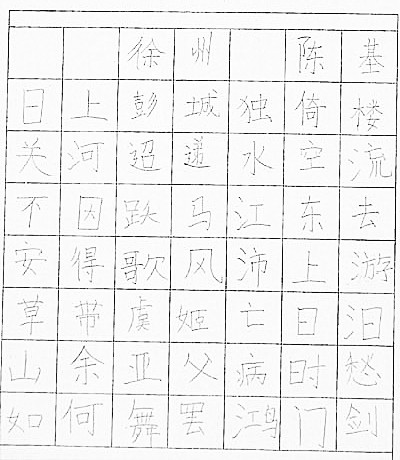 徐州 陈基
日上彭城独倚楼
关河迢递水空流
不因跌马江东去
安得歌风沛上游
草带虞姬亡日泪
山余亚父病时愁
如何舞罢鸿门剑